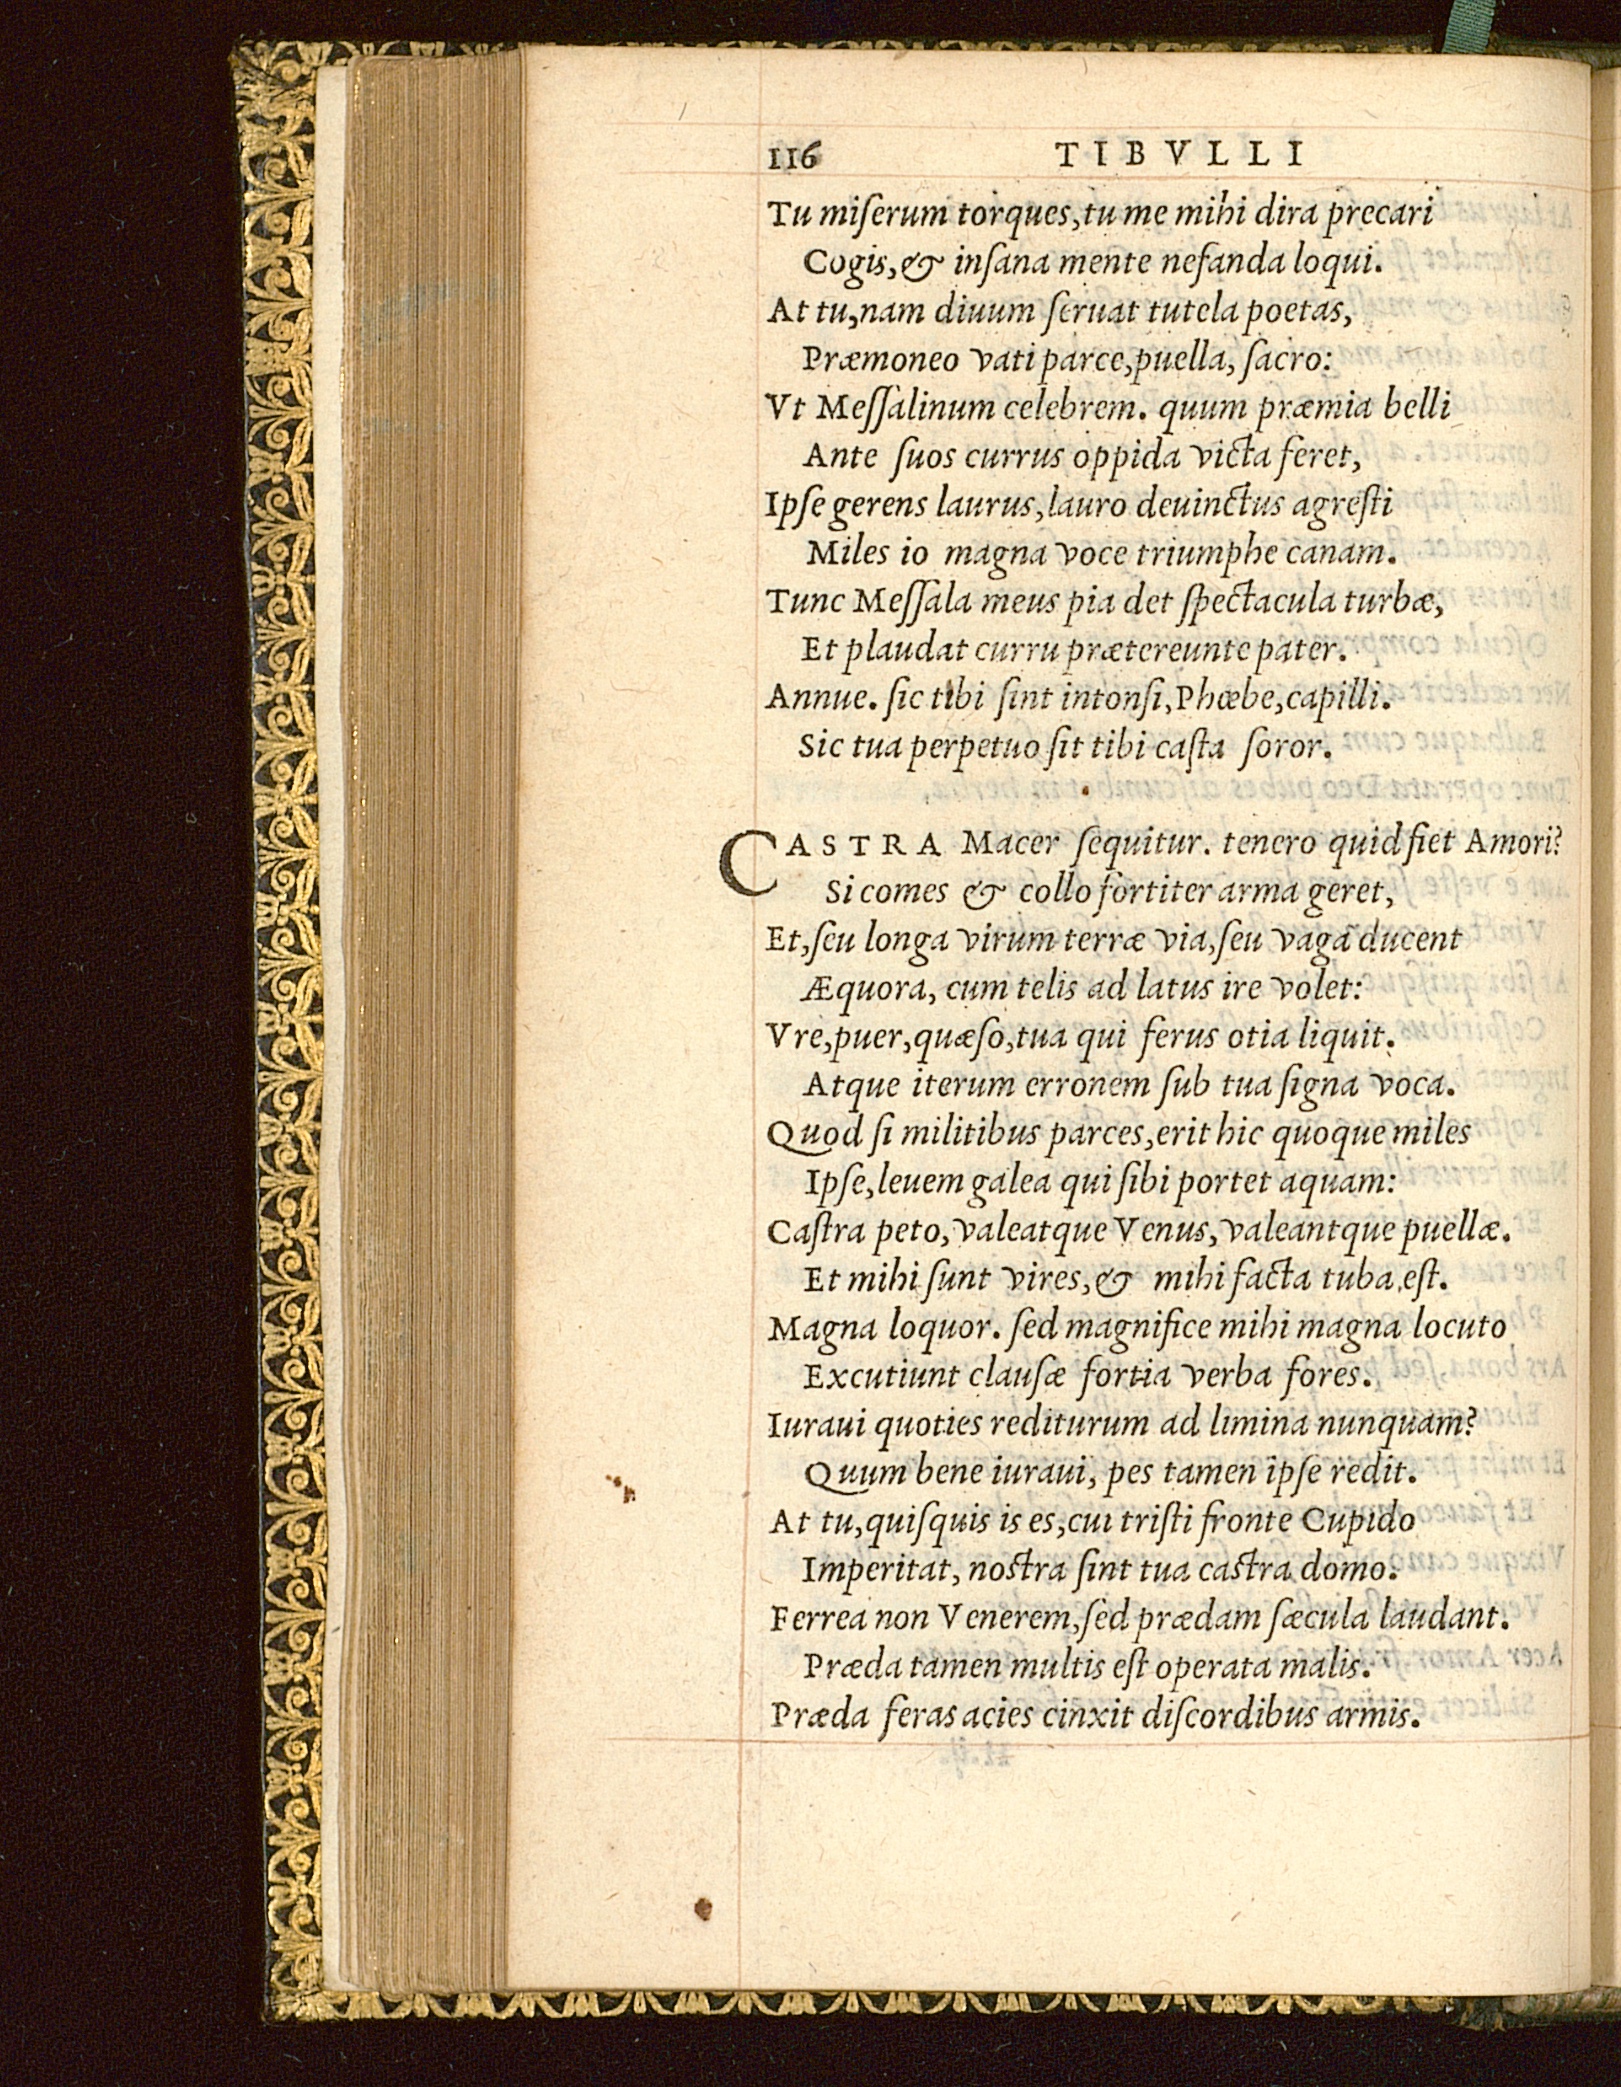 116 TIBVLLI
Tu miſerum torques, tu me mihi dira precari
Cogis, & inſana mente nefanda loqui.
At tu, nam diuum ſeruat tutela poetas,
Præmoneo vati parce, puella, ſacro:
Vt Meſſalinum celebrem. quum præmia belli
Ante ſuos currus oppida victa feret,
Ipſe gerens laurus, lauro deuinctus agreſti
Miles io magna voce triumphe canam.
Tunc Meſſala meus pia det ſpectacula turbæ,
Et plaudat curru prætereunte pater.
Annue. ſic tibi ſint intonſi, Phœbe, capilli.
Sic tua perpetuo ſit tibi caſta ſoror.
CASTRA Macer ſequitur. tenero quid fiet Amori?
Si comes & collo fortiter arma geret,
Et, ſeu longa virum terræ via, ſeu vaga ducent
Æquora, cum telis ad latus ire volet:
Vre, puer, quæſo, tua qui ferus otia liquit.
Atque iterum erronem ſub tua ſigna voca.
Quod ſi militibus parces, erit hic quoque miles
Ipſe, leuem galea qui ſibi portet aquam:
Caſtra peto, valeatque Venus, valeantque puellæ.
Et mihi ſunt vires, & mihi facta tuba eſt.
Magna loquor. ſed magnifice mihi magna locuto
Excutiunt clauſæ fortia verba fores.
Iuraui quoties rediturum ad limina nunquam?
Quum bene iuraui, pes tamen ipſe redit.
At tu, quiſquis is es, cui triſti fronte Cupido
Imperitat, noſtra ſint tua caſtra domo.
Ferrea non Venerem, ſed prædam ſæcula laudant.
Præda tamen multis eſt operata malis.
Præda feras acies cinxit diſcordibus armis.